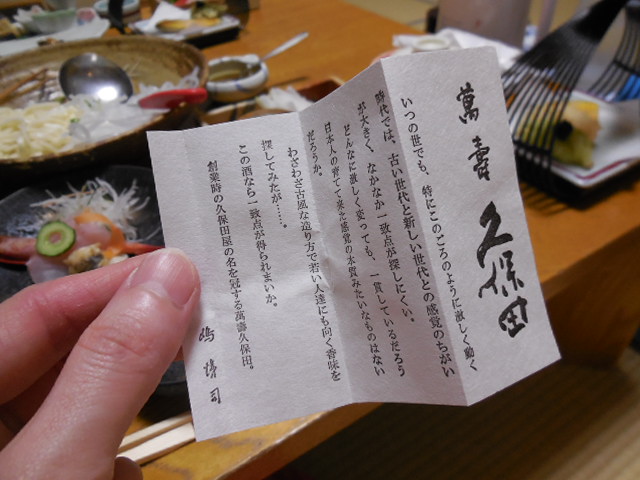 萬壽 久保田
いつの世でも、特にこのごろのように激しく動く
時代では、古い世代と新しい世代との感覚のちがい
が大きく、なかなか一致点が探しにくい。
どんなに激しく変っても、一貫しているだろう
日本人の育てて来た感覚の本質みたいなものはない
だろうか。
わざわざ古風な造り方で若い人達にも向く香味を
探してみたが……。
この酒なら一致点が得られまいか。
創業時の久保田屋の名を冠する萬壽久保田。
嶋 悌司